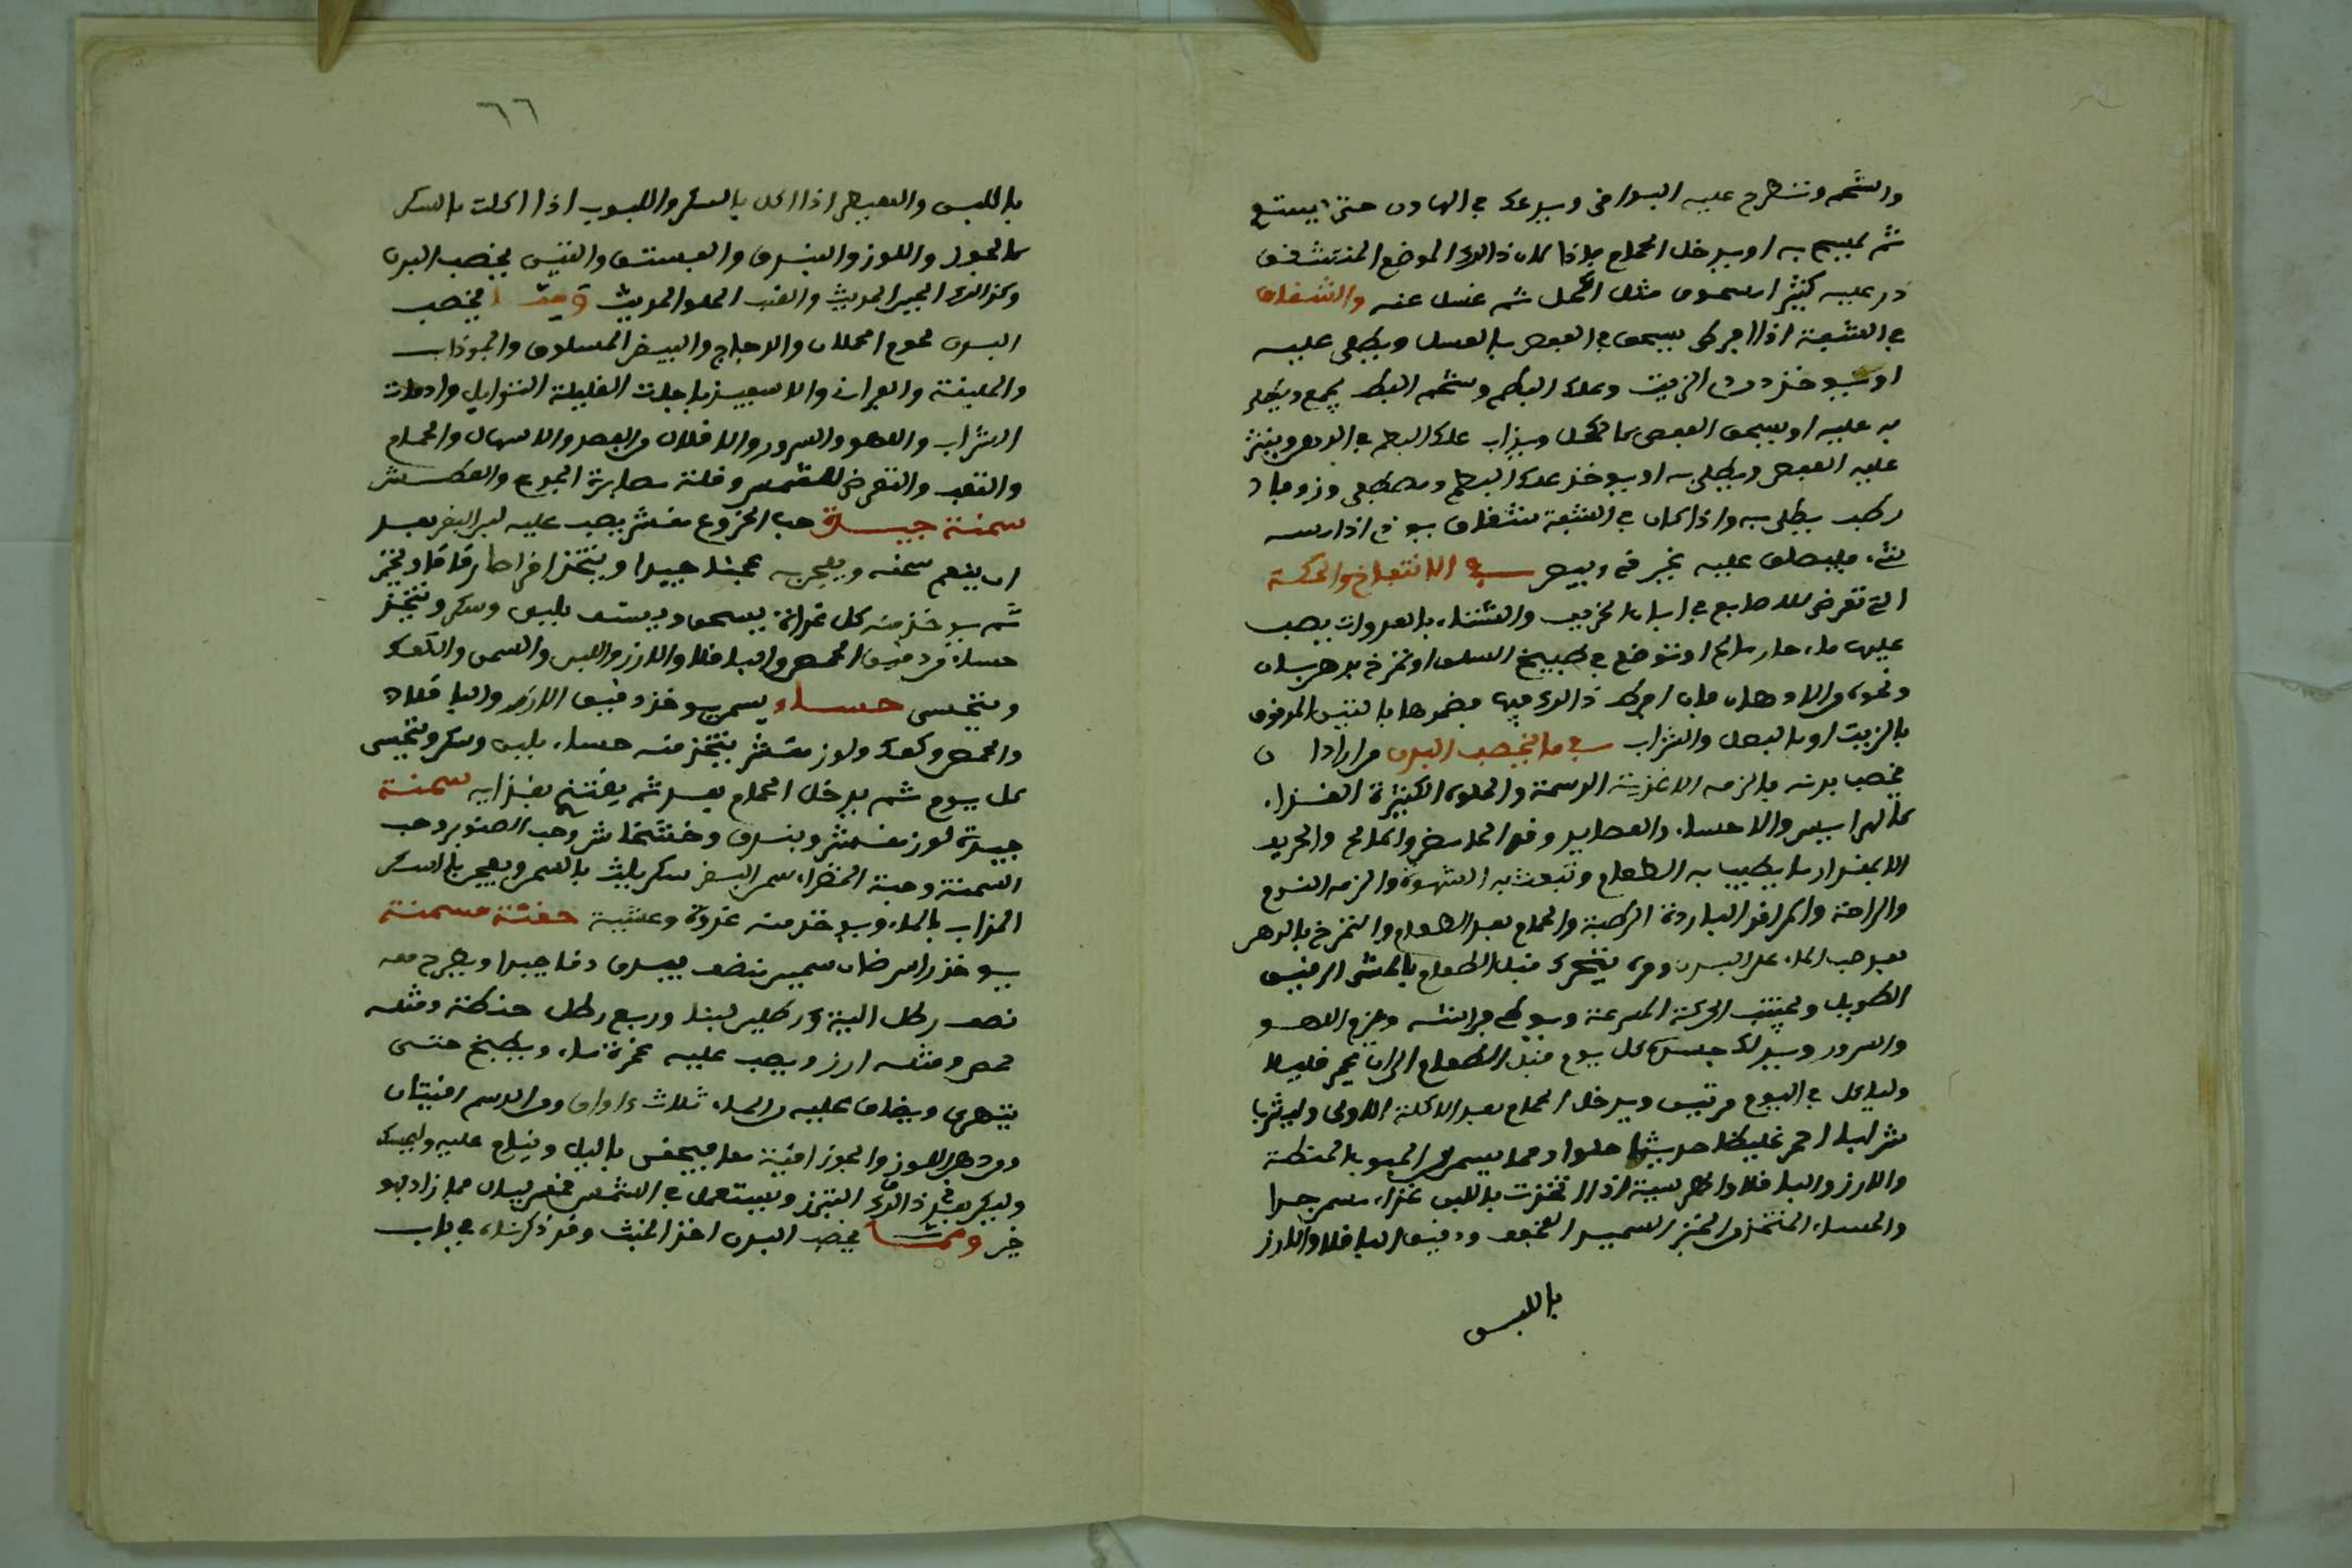 والشحم وتطرح عليه البواقي ويدعك في الهاون حتى يستوي
ثم يمسح به او يدخل الحمام فاذا لان ذالك الموضع المتشقق
ذر عليه كثيرا مسحوق مثل الكحل ثم غسل عنه والشقاق
في الشفة اذا افرط يسحق العفص بالعسل ويطلى عليه
او يوخذ دردي الزيت وعلك البطم وشحم البط يجمع ويطلى
به عليه او يسحق العفص كالكحل ويذاب علك البطم في الدهن وينثر
عليه العفص ويطلى به او يوخذ علك البطم ومصطكى وزوفا
رطب يطلى به واذا كان في الشفة شقاق يوذي اذا مسه
شيء فليلصق عليه غرقي البيض في الانتفاخ والحكة
التي تعرض للاصابع في ايام الخريف والشتاء بالغدوات يصب
عليها ماء حار مالح او توضع في طبيخ السلق او تمرخ بدهن بان
ونحوه من الادهان فان افرط ذالك فيها فضمدها بالتين المدقوق
بالزيت او بالبصل والشراب في ما يخصب البدن من اراد ان
يخصب بدنه فالزمه الاغذية الدسمة والحلوة الكثيرة الغذاء
كالهرايس والاحساء والعصايد ودع الحامض والمالح والحريف
الا بمقدار ما يطيب به الطعام وتبعث به الشهوة والزمه النوم
والراحة والمراقد الباردة الرطبة والحمام بعد الطعام والتمرخ بالدهن
بعد صب الماء على البدن ومره يتحرك قبل الطعام بالمشي الرفيق
الطويل ويجتنب الحركة المسرعة ويوطى فراشه ويلزم اللهو
والسرور ويدلك جسده كل يوم قبل الطعام الى ان يحمر قليلا
ولياكل في اليوم مرتين ويدخل الحمام بعد الاكلة الاولى وليشرب
شرابا احمر غليظا حديثا حلوا ومما يسمن الحبوب الحنطة
والارز والباقلا والهريسة اذا اتخذت باللبن غذاء يسمن جدا
والحساء المتخذ من الخبز السميد المجفف ودقيق الباقلا والارز
باللبن
٦٦
باللبن والبيض اذا اكل بالسكر واللبوب اذا اكلت بالسكر
كالجوز واللوز والبندق والفستق والتين يخصب البدن
وكذالك الجبن الحديث والعنب الحلو الحديث ومما يخصب
البدن لحوم الحملان والدجاج والبيض المسلوق والجوذاب
والملبقة والفراني والاسفيذباجات القليلة التوابل وادمان
الشراب واللهو والسرور والاقلال من الفصد والاسهال والحمام
والتعب والتعرض للشمس وقلة مصابرة الجوع والعطش
سمنة جيدة حب الخروع مقشر يصب عليه لبن البقر بعد
ان ينعم سحقه ويعجن به عجنا جيدا ويتخذ اقراصا رقاقا ويخبز
ثم يوخذ منه كل غداة يسحق ويستف بلبن وسكر ويتخذ
حساء من دقيق الحمص والباقلا والارز واللبن والسمن والكعك
ويتحسى حساء يسمن يوخذ دقيق الارز والباقلا
والحمص وكعك ولوز مقشر يتخذ منه حساء بلبن وسكر ويتحسى
كل يوم ثم يدخل الحمام بعد ثم يغتذي بغذايه سمنة
جيدة لوز مقشر وبندق وخشخاش وحب الصنوبر وحب
السمنة وحبة الخضراء سمن البقر سكر يلت بالسمن ويعجن بالسكر
المذاب بالماء ويوخذ منه غدوة وعشية حقنة مسمنة
يوخذ راس ضان سمين ينضف ويدق دقا جيدا ويطرح معه
نصف رطل الية ورطلين لبنا وربع رطل حنطة ومثله
حمص ومثله ارز ويصب عليه غمرة ماء ويطبخ حتى
يتهرى ويضاف عليه من الماء ثلاث اواق ومن الدسم اقيتان
ومن دهن اللوز والجوز اقية معا فيحقن بالليل وينام عليه وليمسك
وليكن بعد ذالك التبرز ويستعمل في الشمس خمس ليال فما زاد فهو
خير ومما يخصب البدن اخذ الخبث وقد ذكرناه في باب